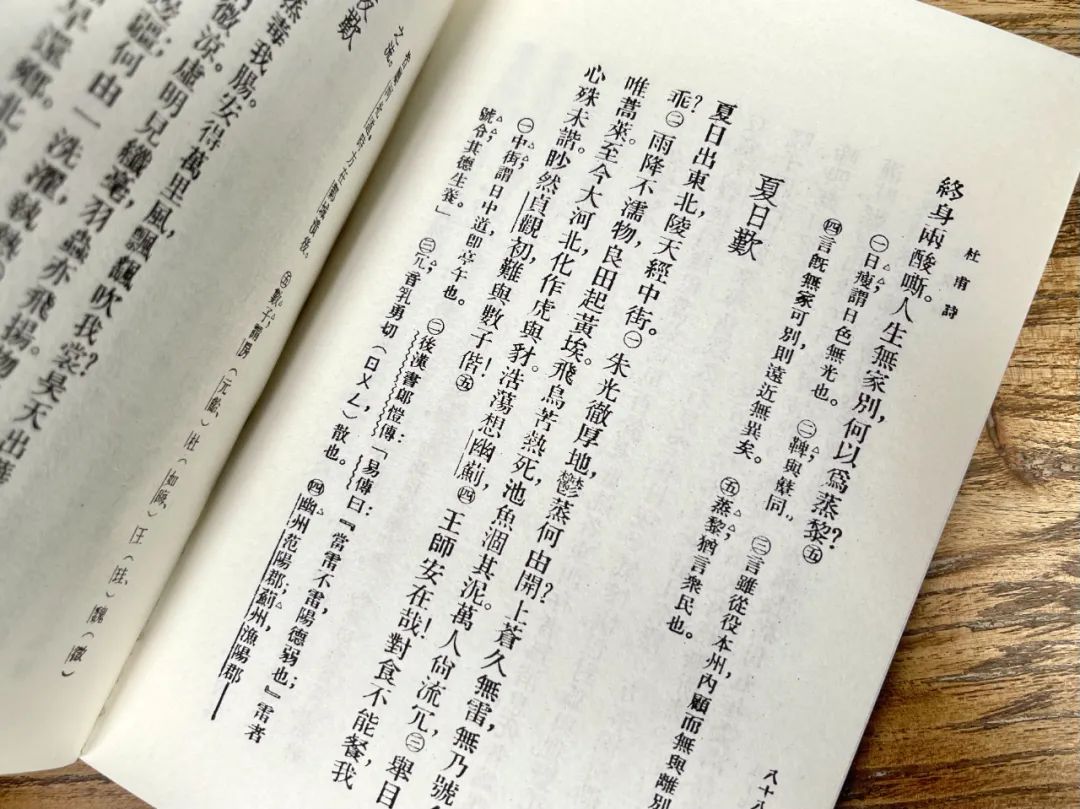 杜甫詩
終身兩酸嘶。人生無家別,何以爲蒸黎?㊄
㊀日瘦,謂日色無光也。 ㊁鞞與鼙同。 ㊂言雖從役本州,內顧而無與離別
㊃言旣無家可別,則遠近無異矣。 ㊄蒸黎,猶言衆民也。
夏日歎
夏日出東北,陵天經中街。㊀朱光徹厚地,鬱蒸何由開?上蒼久無雷,無乃號
乖?㊁雨降不濡物,良田起黃埃。飛鳥苦熱死,池魚涸其泥。萬人尙流冗,㊂舉目
唯蒿萊。至今大河北,化作虎與豺。浩蕩想幽薊,㊃王師安在哉!對食不能餐,我
心殊未諧。眇然貞觀初,難與數子偕!㊄
㊀中街,謂日中道,卽亭午也。 ㊁後漢書郎顗傳:「易傳曰:『當雷不雷,陽德弱也;』雷者
號令,其德生養。」 ㊂冗,音孔勇切(ㄖㄨㄥ),散也。 ㊃幽州范陽郡,薊州漁陽郡——
八十八
㊄數子,謂房(元齡)、杜(如晦)、王(珪)、魏(徵)
歎
毒我腸。安得萬里風,飄颻吹我裳?昊天出華
微涼。虛明見纖毫,羽蟲亦飛揚。物
邊疆,何由一洗濯,執熱
早還鄉。北